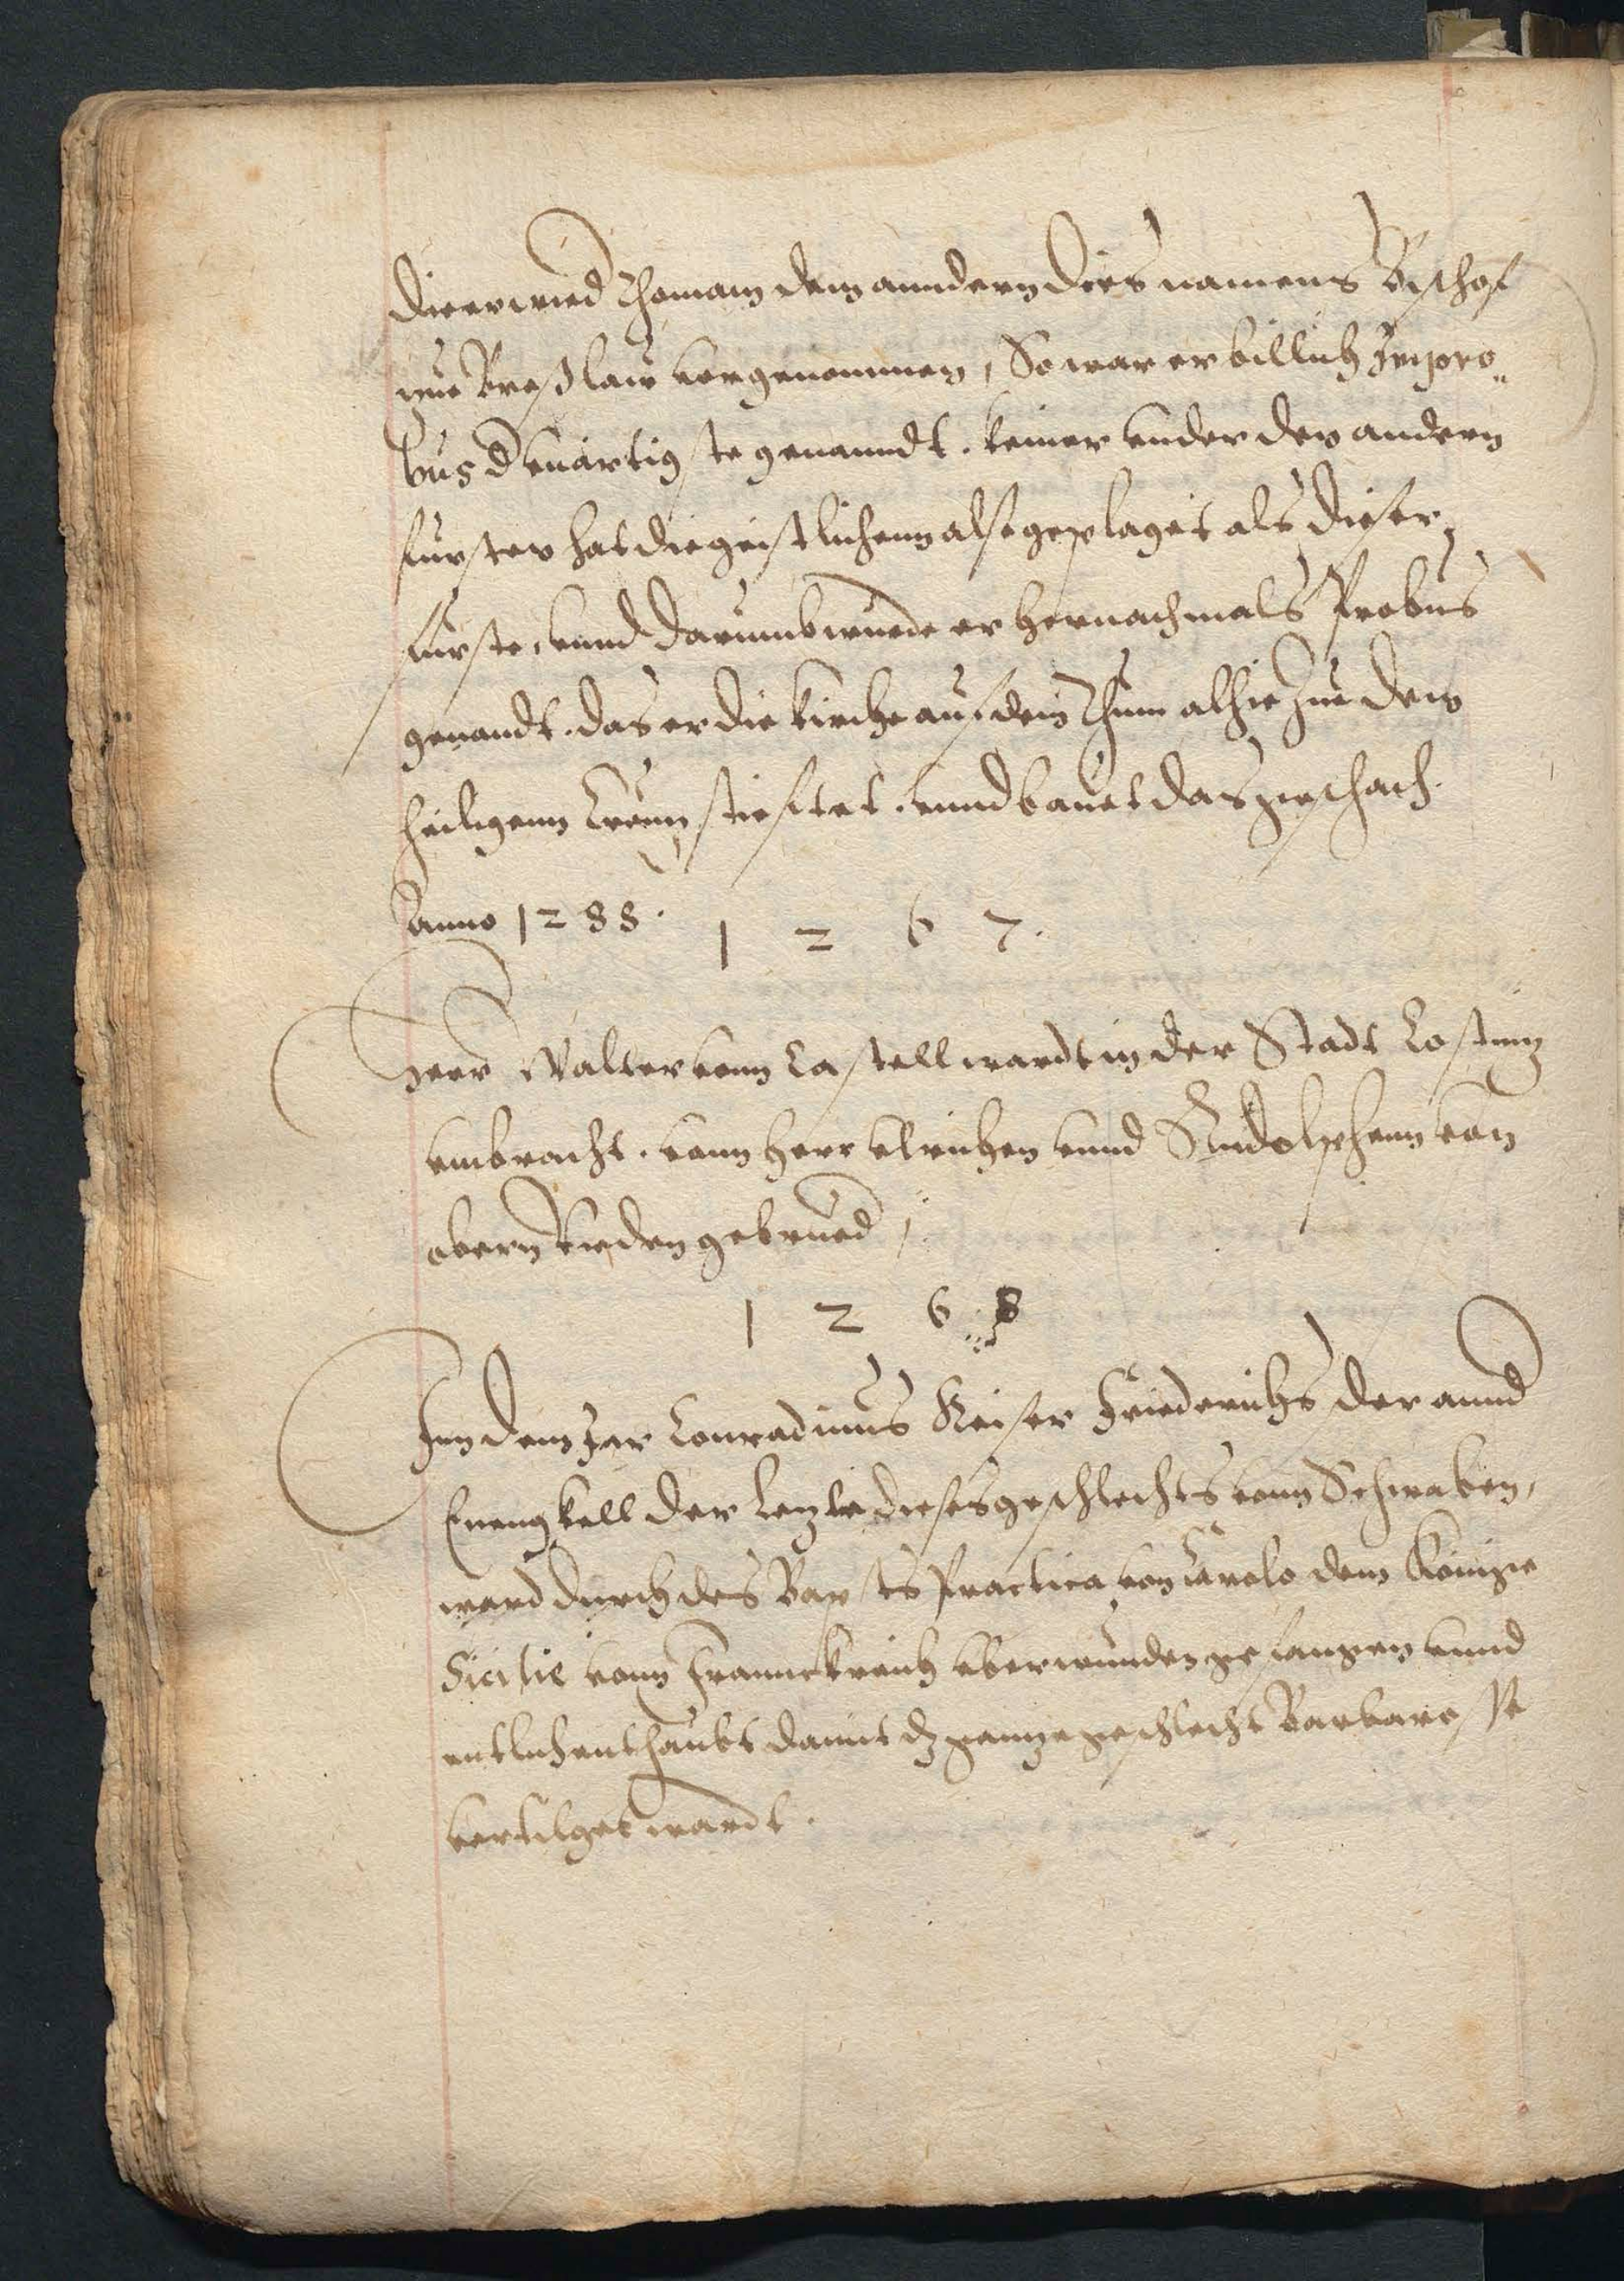 die er wied Thomam dem anndern dies namens Bischof
zue Breßlaw vorgenommen, So war er billich Impro„
bus d vnartigste genanndt. keiner vnder den andern
fursten hat die geistlichenn also geplaget als dieser
furste, vnnd darumb wurde er hernachmals Probus
genandt. das er die kirche auf dem Thum alhie zue dem
heiligenn Creuz stiefftet. vnnd bauet das geschach.
Anno 1288.
1 2 6 7.
Herr Walter vonn Castell wardt in der Stadt Costniz
vmbracht. vonn herr Vlrichen vnnd Rudolphenn von
obern Rieden gebrued,
1 2 6 8
Inn dem Jar Conradinus Keiser Friederichs der annd
Enengkell der lezte dieses geschlechts vonn Schwaben,
ward durch des Bapsts Practica von Carolo dem Könige
Sicilie vonn Franckreich vberwunden gefangen vnnd
entlich enthaubt damit dz ganze geschlecht Barbarosse
vertilget wardt.